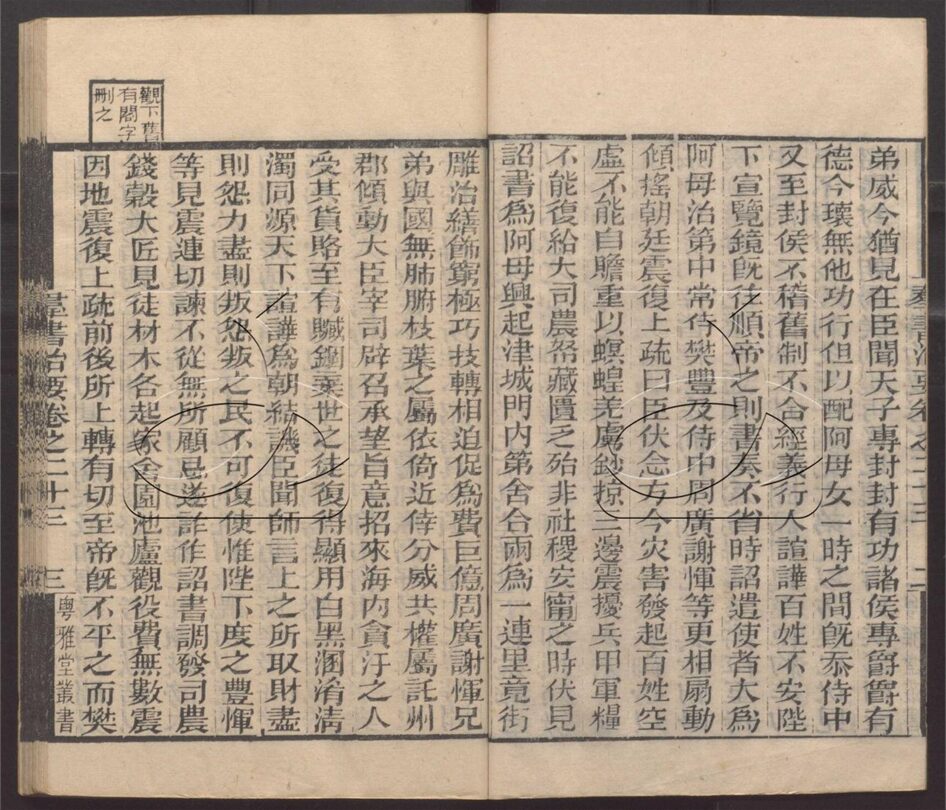 弟威今猶見在臣聞天子專封封有功諸侯專爵爵有
德今瓌無他功行但以配阿母女一時之間旣忝侍中
又至封侯不稽舊制不合經義行人諠譁百姓不安陛
下宣覽鏡旣往順帝之則書奏不省時詔遣使者大爲
阿母治第中常侍樊豐及侍中周廣謝惲等更相扇動
傾搖朝廷震復上疏曰臣伏念方今灾害發起百姓空
虛不能自贍重以螟蝗羌虜鈔掠三邊震擾兵甲軍糧
不能復給大司農帑藏匱乏殆非社稷安甯之時伏見
詔書爲阿母興起津城門內第舍合兩爲一連里竟街
雕治繕飾窮極巧技轉相迫促爲費巨億周廣謝惲兄
弟與國無肺腑枝葉之屬依倚近倖分威共權屬託州
郡傾動大臣宰司辟召承望旨意招來海內貪汙之人
受其貨賂至有贓錮棄世之徒復得顯用白黑溷淆淸
濁同源天下諠譁爲朝結譏臣聞師言上之所取財盡
則怨力盡則叛怨叛之民不可復使惟陛下度之豐惲
等見震連切諫不從無所顧忌遂詐作詔書調發司農
錢穀大匠見徒材木各起冢舍園池廬觀役費無數震
因地震復上疏前後所上轉有切至帝旣不平之而樊
觀下舊
有閣字
刪之
羣書治要卷之二十三
三
粤雅堂叢書